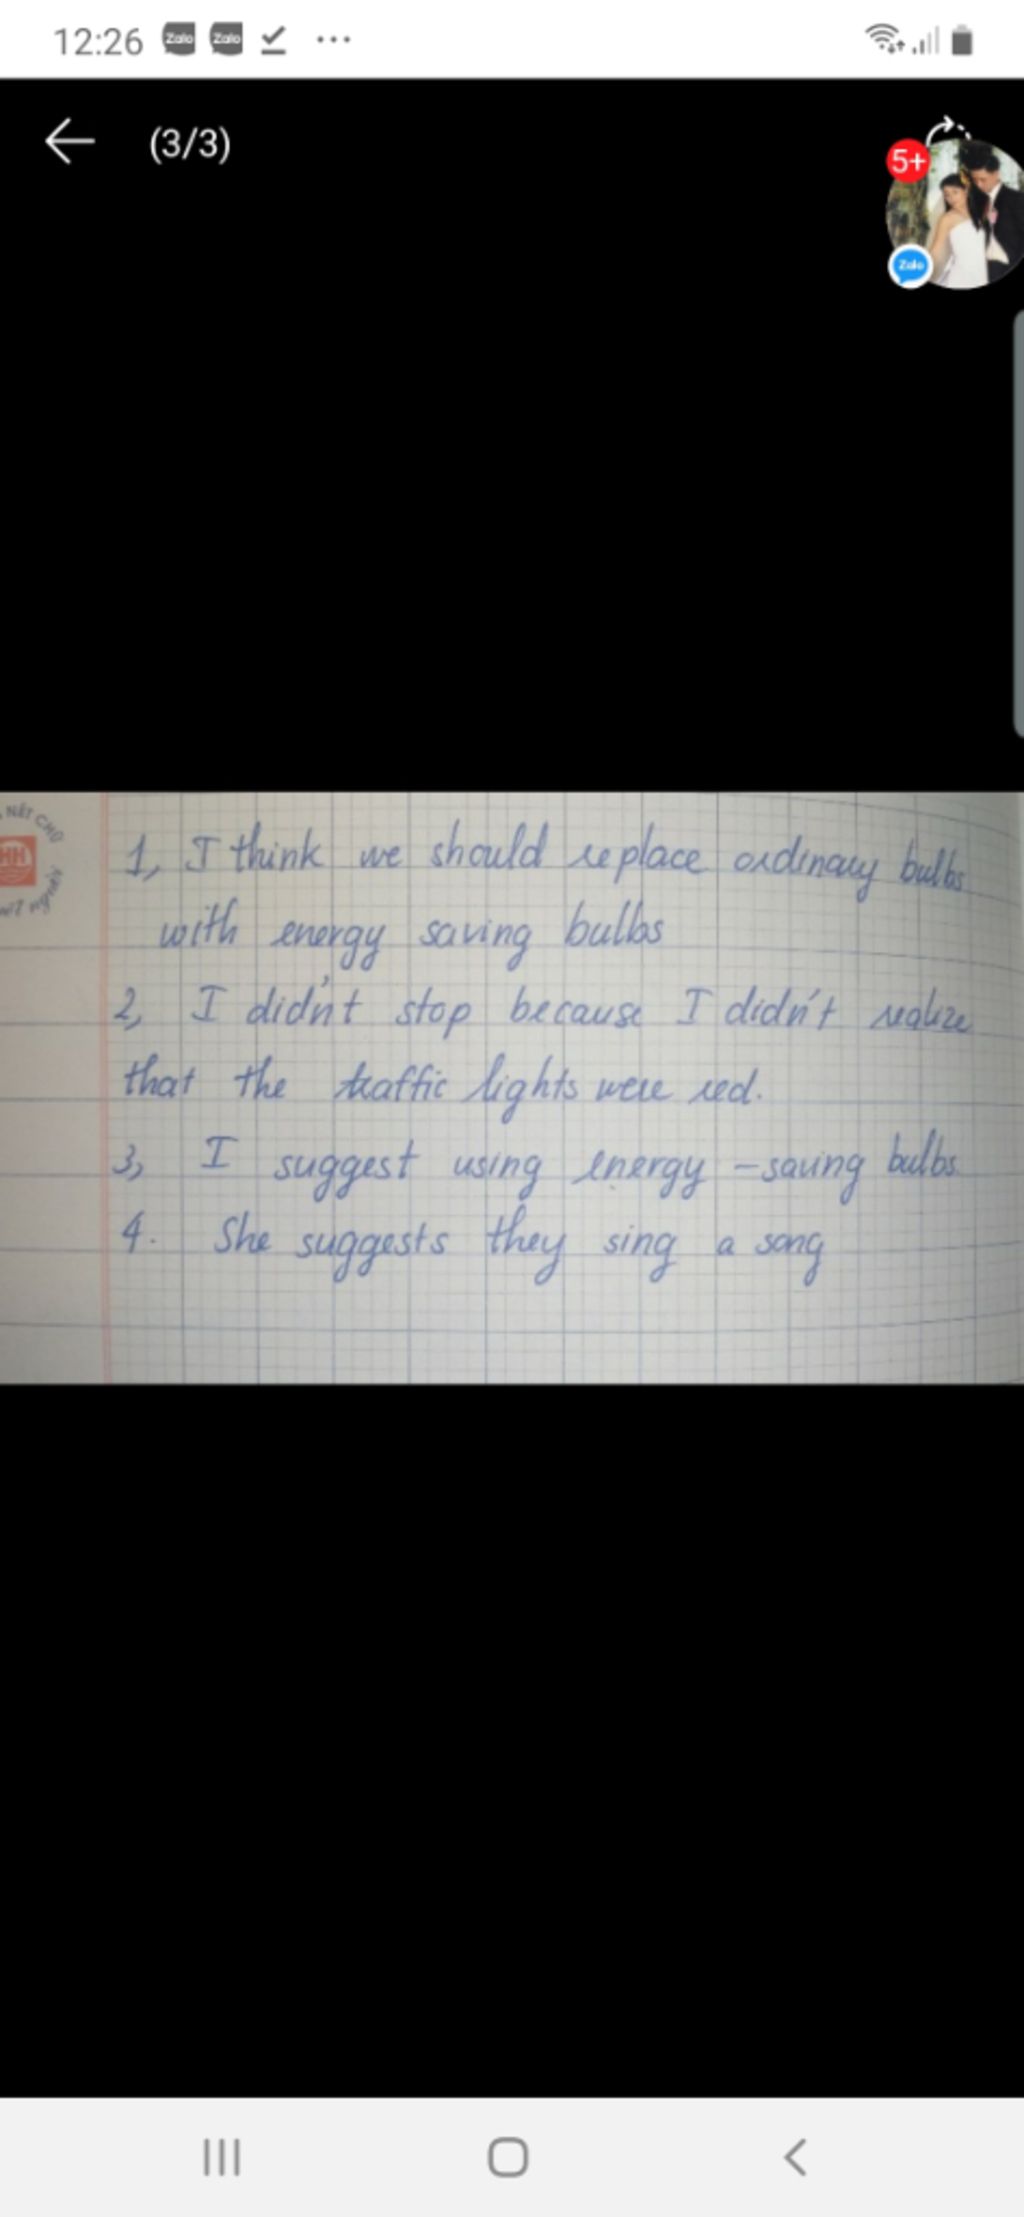 12:26 Zalo Zalo
(3/3)
5+
Zalo
NÉT CHỮ
HH
1, I think we should replace ordinary bulbs
with energy saving bulbs
2, I didn't stop because I didn't realize
that the traffic lights were red.
3, I suggest using energy -saving bulbs
4. She suggests they sing a song